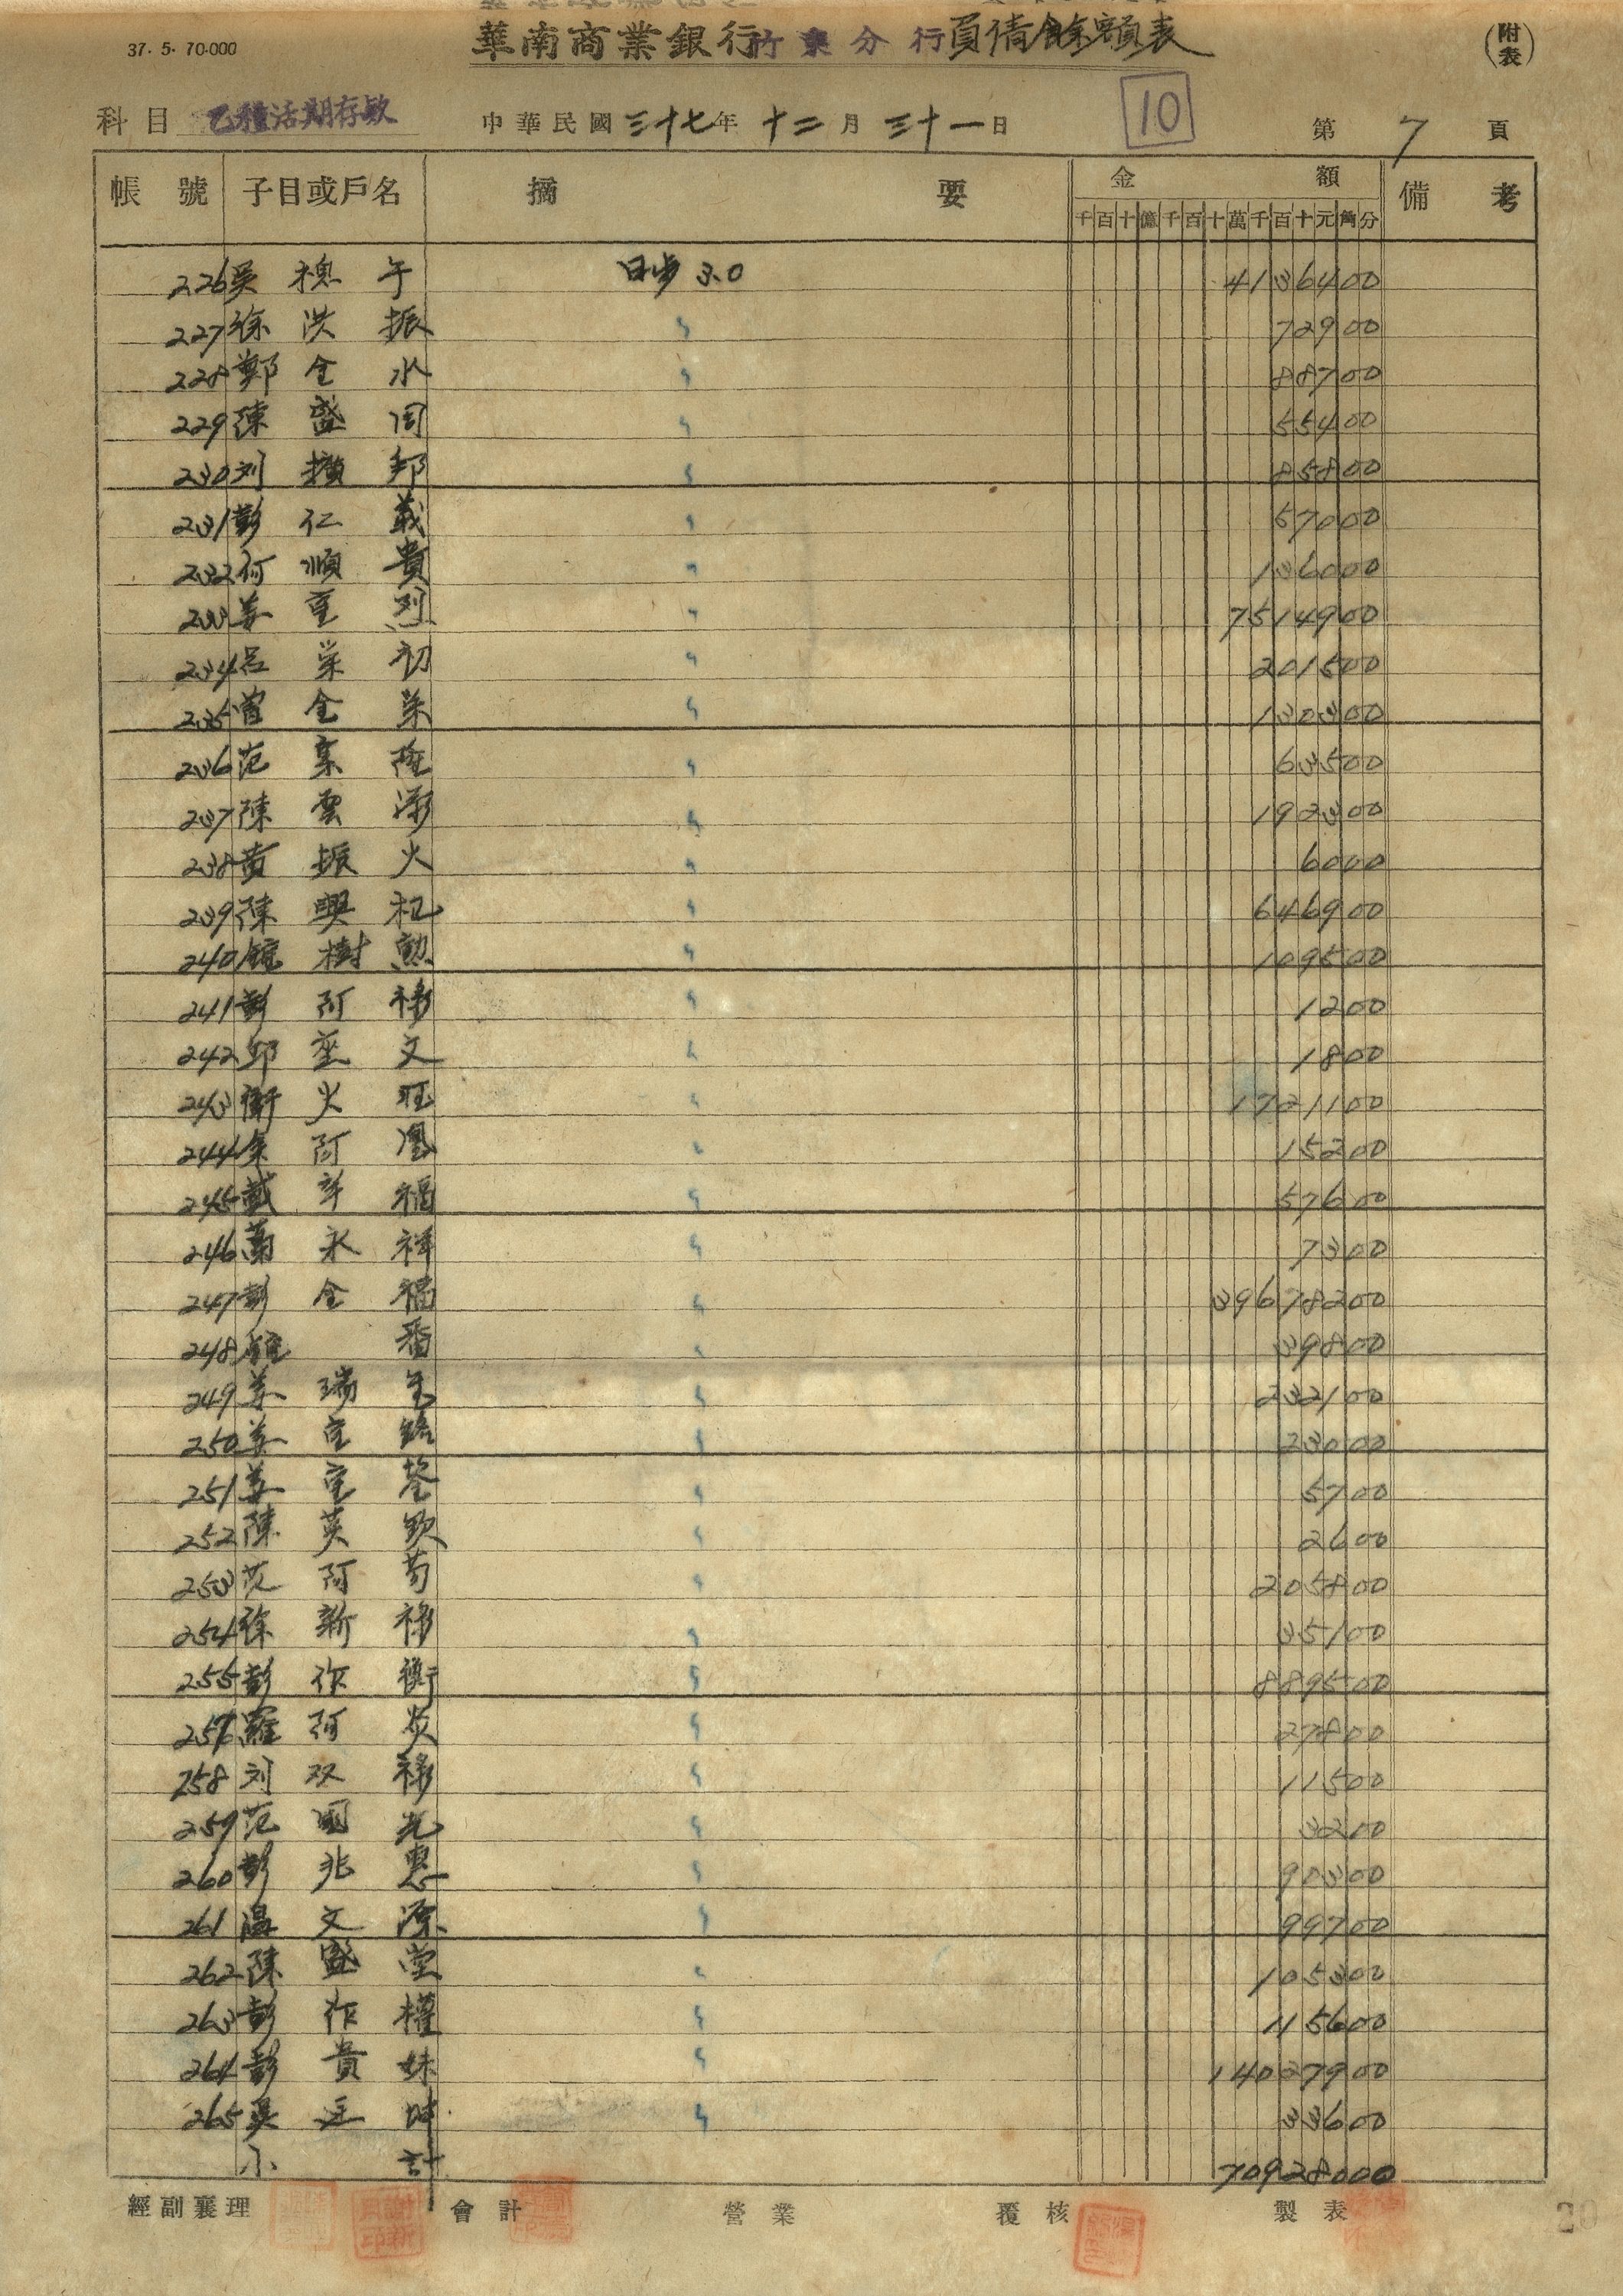 37. 5. 70.000
華南商業銀行竹東分行負債餘額表
(附表)
科目 乙種活期存款 中華民國三十七年十二月三十一日 10 第7頁
帳號 子目或戶名 摘要 金額 備考
千百十億千百十萬千百十元角分
226 吳穗午 日步3.0 4136400
227 徐洪振 〃 72900
228 鄭金水 〃 88700
229 陳盛周 〃 55400
230 刘拱邦 〃 85800
231 彭仁義 〃 57000
232 何順貴 〃 136000
233 姜重烈 〃 7514900
234 呂榮初 〃 201500
235 曾金榮 〃 130300
236 范景隆 〃 63500
237 陳雲漈 〃 192300
238 黄振火 〃 6000
239 陳興杞 〃 646900
240 鍾樹勲 〃 109500
241 彭阿祿 〃 1200
242 邱奎文 〃 1800
243 衛火旺 〃 1721100
244 朱阿凰 〃 15200
245 戴辛福 〃 57600
246 萬永祥 〃 7300
247 彭金福 〃 39678200
248 鍾番 〃 39800
249 姜瑞金 〃 232100
250 姜重銘 〃 23000
251 姜重 〃 5700
252 陳英欽 〃 2600
253 范阿苟 〃 205800
254 徐新祿 〃 35100
255 彭作衡 〃 889500
257 羅阿炎 〃 27800
258 刘双祿 〃 11500
259 范國光 〃 3200
260 彭兆惠 〃 90300
261 温文源 〃 99700
262 陳盛堂 〃 105300
263 彭作權 〃 115600
264 彭貴妹 〃 14027900
265 吳廷坤 〃 33600
小計 70928000
經副襄理 會計 營業 覆核 製表
20